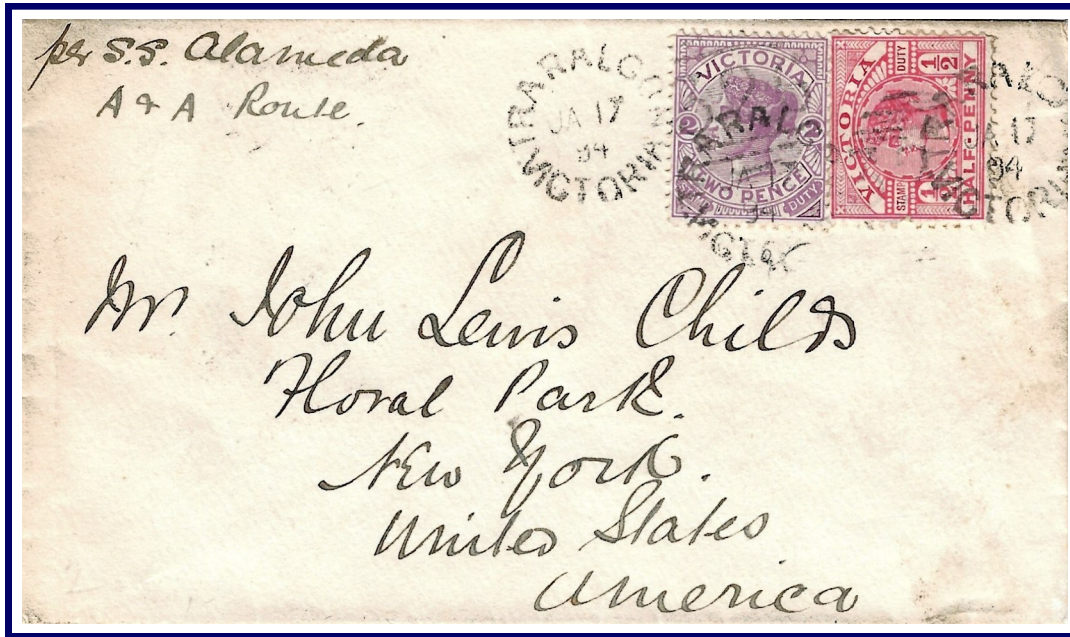 per S.S. Alameda
A & A Route.
TRARALGON
JA 17
94
VICTORIA
VICTORIA
2 2
TWO PENCE
STAMP DUTY
TRARALGON
JA 17
94
VICTORIA
VICTORIA
STAMP DUTY
1/2 1/2
HALF-PENNY
TRARALGON
JA 17
94
VICTORIA
Mr John Lewis Childs
Floral Park.
New York.
United States
America